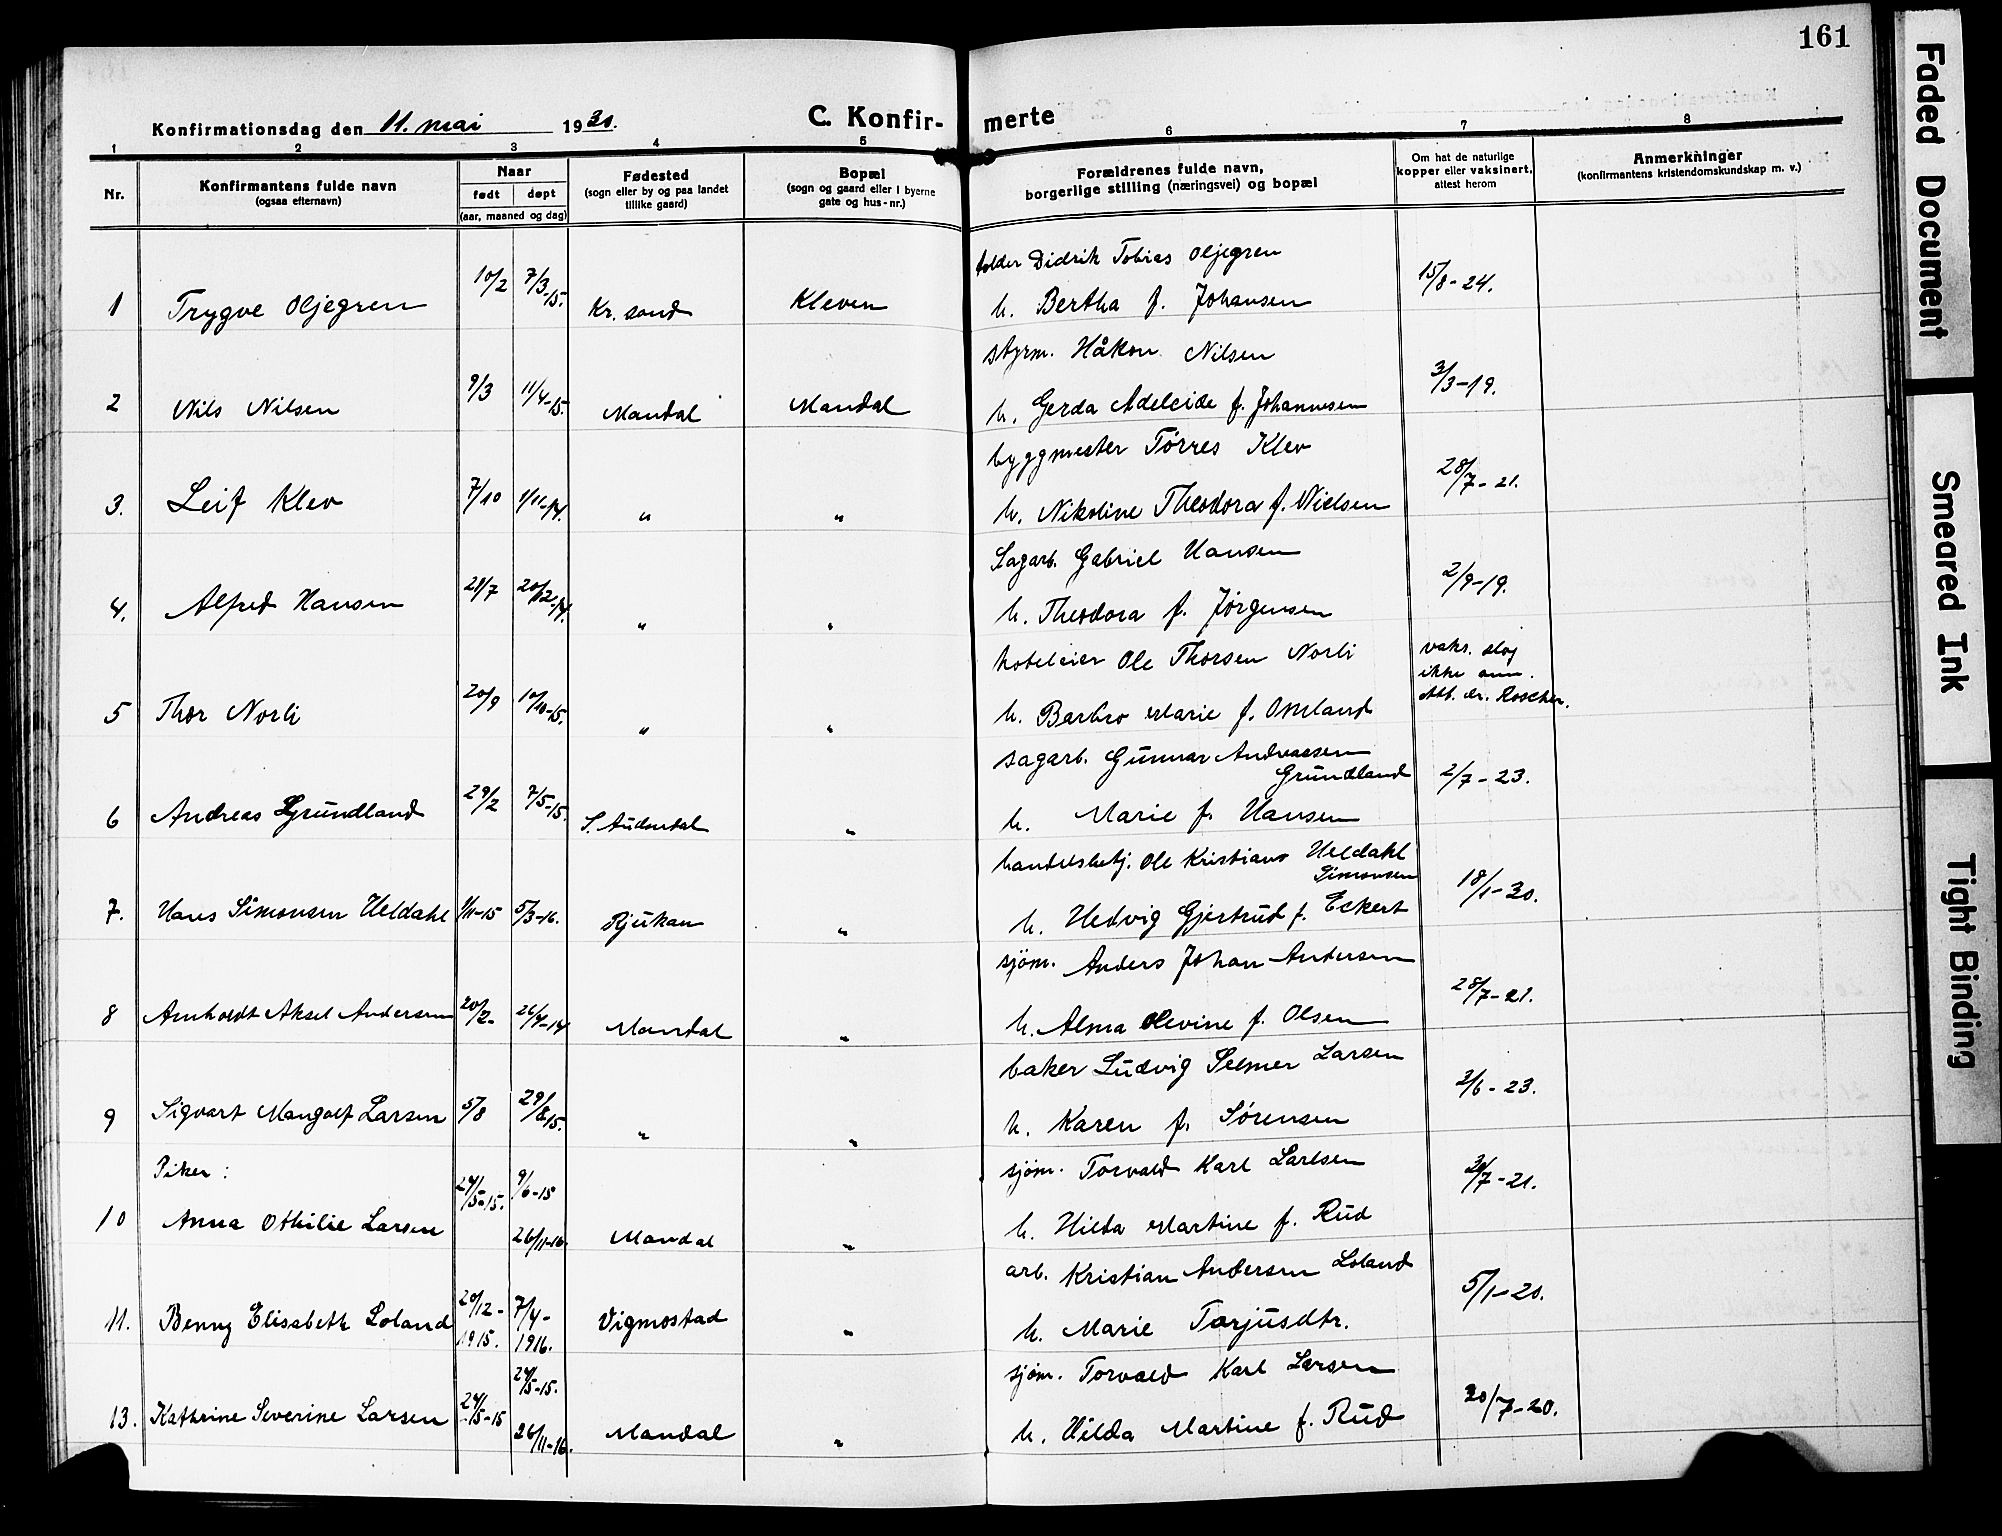 161
Konfirmationsdag den 11. mai 1930.
C. Konfir- merte
1 2 3 4 5 6 7 8
Nr.
Konfirmantens fulde navn
(ogsaa efternavn)
Naar
født døpt
(aar, maaned og dag)
Fødested
(sogn eller by og paa landet
tillike gaard)
Bopæl
(sogn og gaard eller i byerne
gate og hus-nr.)
Forældrenes fulde navn,
borgerlige stilling (næringsvei) og bopæl
Om hat de naturlige
kopper eller vaksinert,
attest herom
Anmerkninger
(konfirmantens kristendomskundskap m. v.)
tolder Didrik Tobias Oljegren
1 Trygve Oljegren 10/2 7/3-15. Kr. sand Kleven h. Bertha f. Johansen 15/8-24.
styrm. Håkon Nilsen
2 Nils Nilsen 9/3 11/4-15. Mandal Mandal h. Gerda Adeleide f. Johannesen 3/3-19.
byggmester Tørres Klev
3. Leif Klev 7/10 1/11-14. " " h. Nikoline Theodora f. Nielsen 28/7-21.
Sagarb. Gabriel Hansen
4. Alfred Hansen 21/7 20/12-14. " " h. Theodora f. Jørgensen 2/9-19.
hoteleier Ole Thorsen Norli
5 Thor Norli 20/9 10/10-15. " " h. Barbro Marie f. Omland
vaks. slog
ikke ann.
Att. dr. Roscher.
sagarb. Gunnar Andreassen
Grundland
6 Andreas Grundland 29/2 7/5-15. S. Audnedal " h. Marie f. Hansen 2/7-23.
handelsbetj. Ole Kristians Heldahl
Simonsen
7. Hans Simonsen Heldahl 1/11-15 5/3-16. Rjukan " h. Hedvig Gjertrud f. Eckert 18/1-30.
sjøm. Anders Johan Andersen
8 Arnholdt Aksel Andersen 20/2- 26/4-14 Mandal " h. Alma Olevine f. Olsen 28/7-21.
baker Ludvig Selmer Larsen
9 Sigvart Mangolf Larsen 5/8 29/8-15. " " h. Karen f. Sørensen 2/6-23.
Piker:
sjøm. Torvald Karl Larlsen
10 Anna Othilie Larsen 24/5-15. 9/6-15
26/11-16. Mandal " h. Hilda Martine f. Rud 20/7-21.
arb. Kristian Andersen Loland
11. Benny Elisabeth Loland 20/12-1915. 7/4-1916. Vigmostad " h. Marie Tarjusdtr. 5/1-20.
sjøm. Torvald Karl Larsen
13. Kathrine Severine Larsen 24/5-15 24/5-15.
26/11-16. Mandal " h. Hilda Martine f. Rud 20/7-20.
Faded Document
Smeared Ink
Tight Binding